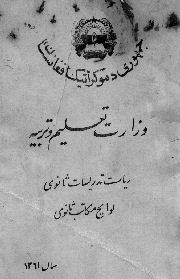 جمهوری دموکراتیک افغانستان
وزارت تعلیم و تربیه
ریاست تدریسات ثانوی
لوایح مکاتب ثانوی
سال ۱۳۶۱